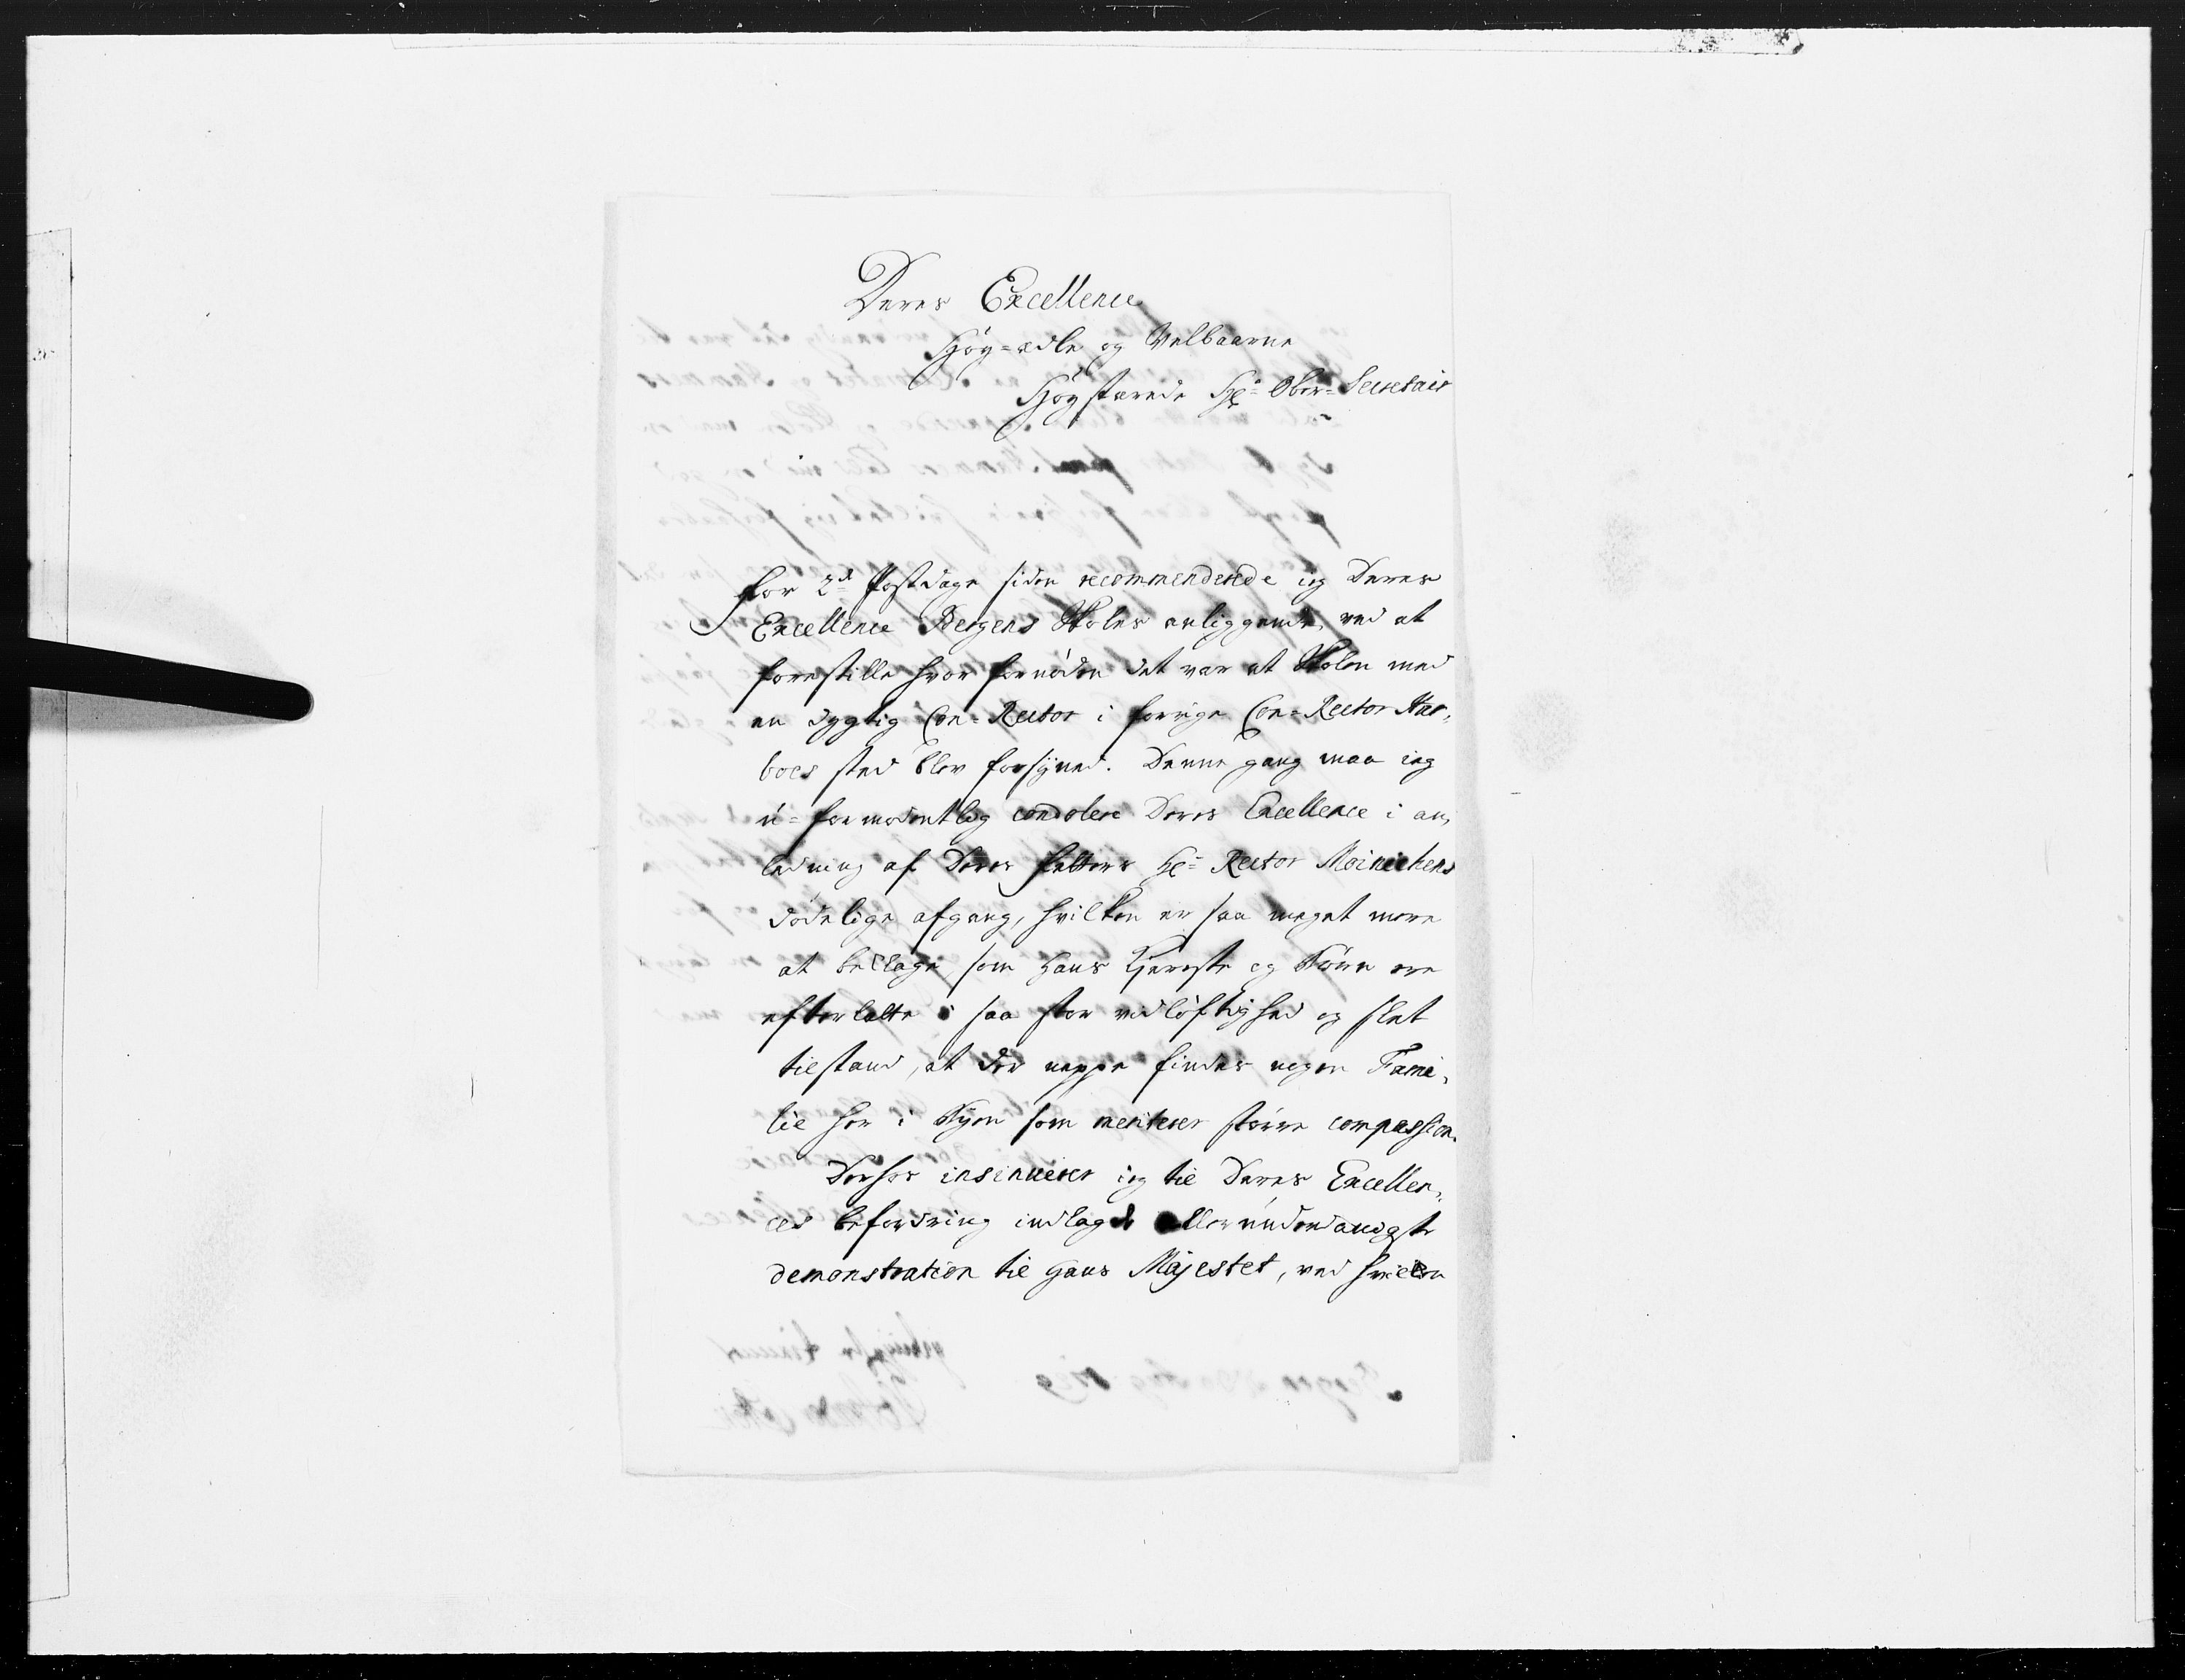 Deres Excellence
Høy-ædle og Velbaarne
Høystærede Hr. Ober-Secretair
For 2de Postdage siden recommenderede ieg Deres
Excellence Bergens Skoles anliggende, ved at
forestille hvor fornøden det var at Skolen med
en dygtig Con-Rector i forrige Con-Rector Har,
boes sted blev forsyned. Denne gang maa ieg
u-formodentlig condolere Deres Excellence i an,
ledning af Deres Fetters Hr. Rector Moinichens
dødelige afgang, hvilken er saa meget mere
at beklage som hans Kjereste og Børn ere
efterladte i saa stor vidløftighed og slet
tilstand, at der neppe findes nogen Fami,
lie her i Byen som meriterer større compassion.
Derfor insinuerer ieg til Deres Excellen,
ces befordring indlagde allerunderdanigste
demonstration til Hans Majestet, ved hvilken